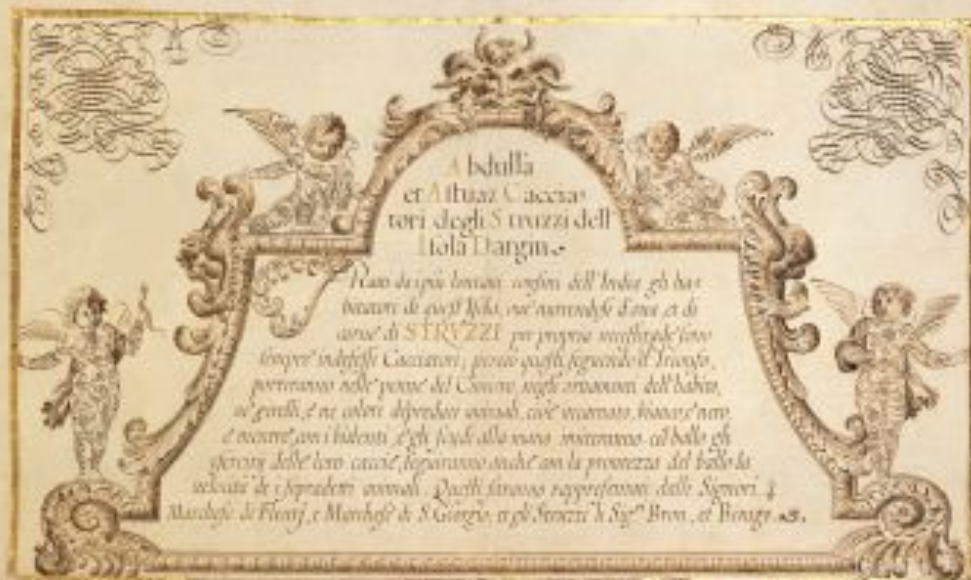 Abdullà
et Aſtuaz Caccia-
tori degli Struzzi dell
Iſola Dangin
da i più lontani confini dell'Indie gli ha-
bitatori di queſt'Iſola, oue nutrendoſi d'oua, et di
carne di STRVZZI per propria ſono
ſempre Cacciatori; perciò queſti ſeguendo il Trionfo,
porteranno nelle penne del Cimiero, negli ornamenti dell'habito,
ne' e ne colori animali, cioè incarnato, bianco, e nero,
e mentre con i bidenti, e gli ſcudi alla mano imiteranno col ballo gli
eſercitij delle loro caccie, anche con la prontezza del ballo la
velocità de i ſopradetti animali. Queſti ſaranno rappreſentati dalli Signori
Marcheſe di Fleury, e Marcheſe di S. Giorgio, et gli Struzzi li Sig.ri Bron, et